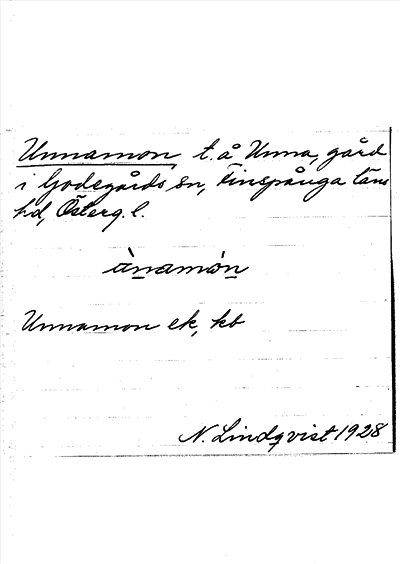 Unnamon, t. å Unna, gård
i Godegårds sn, Finspånga läns
hd, Österg. l.
ànamón
Unnamon ek, kb
N. Lindqvist 1928